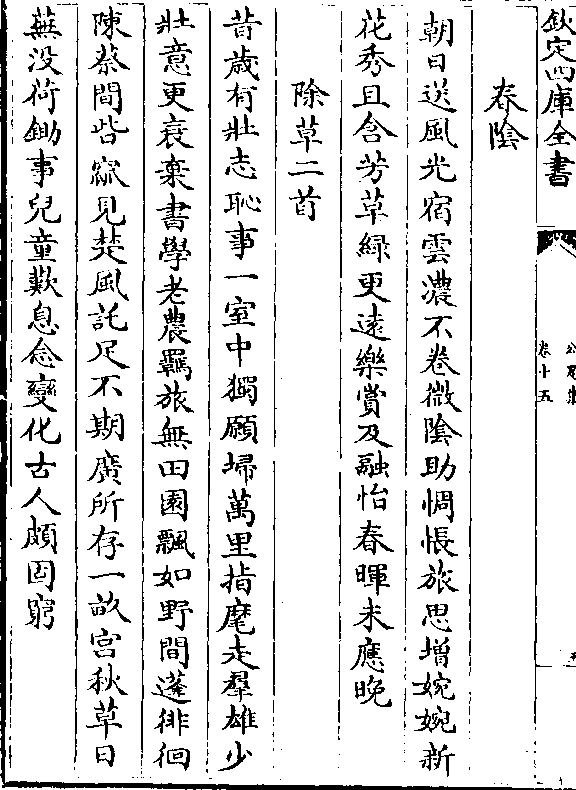 欽定四庫全書
卷十五
春隂
朝日送風光宿雲濃不卷微隂助惆悵旅思增婉婉新
花秀且含芳草緑更遠樂賞及融怡春暉未應晚
除草二首
昔歲有壯志恥事一室中獨願埽萬里指麾走羣雄少
壯意更衰棄書學老農羈旅無田園飄如野間蓬徘徊
陳蔡間呰窳見楚風託足不期廣所存一畝宫秋草日
蕪没荷鋤事兒童歎息念變化古人頗固窮